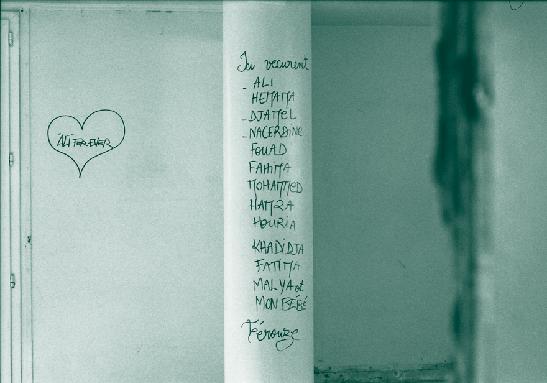 Ici vecurent
- ALI
HEMAMA
- DJAMEL
- NACERDINE
FOUAD
FAHIMA
MOHAMMED
HAMZA
HOURIA
KHADIDJA
FATIMA
MALYA et
MON BÉBÉ
Férouze